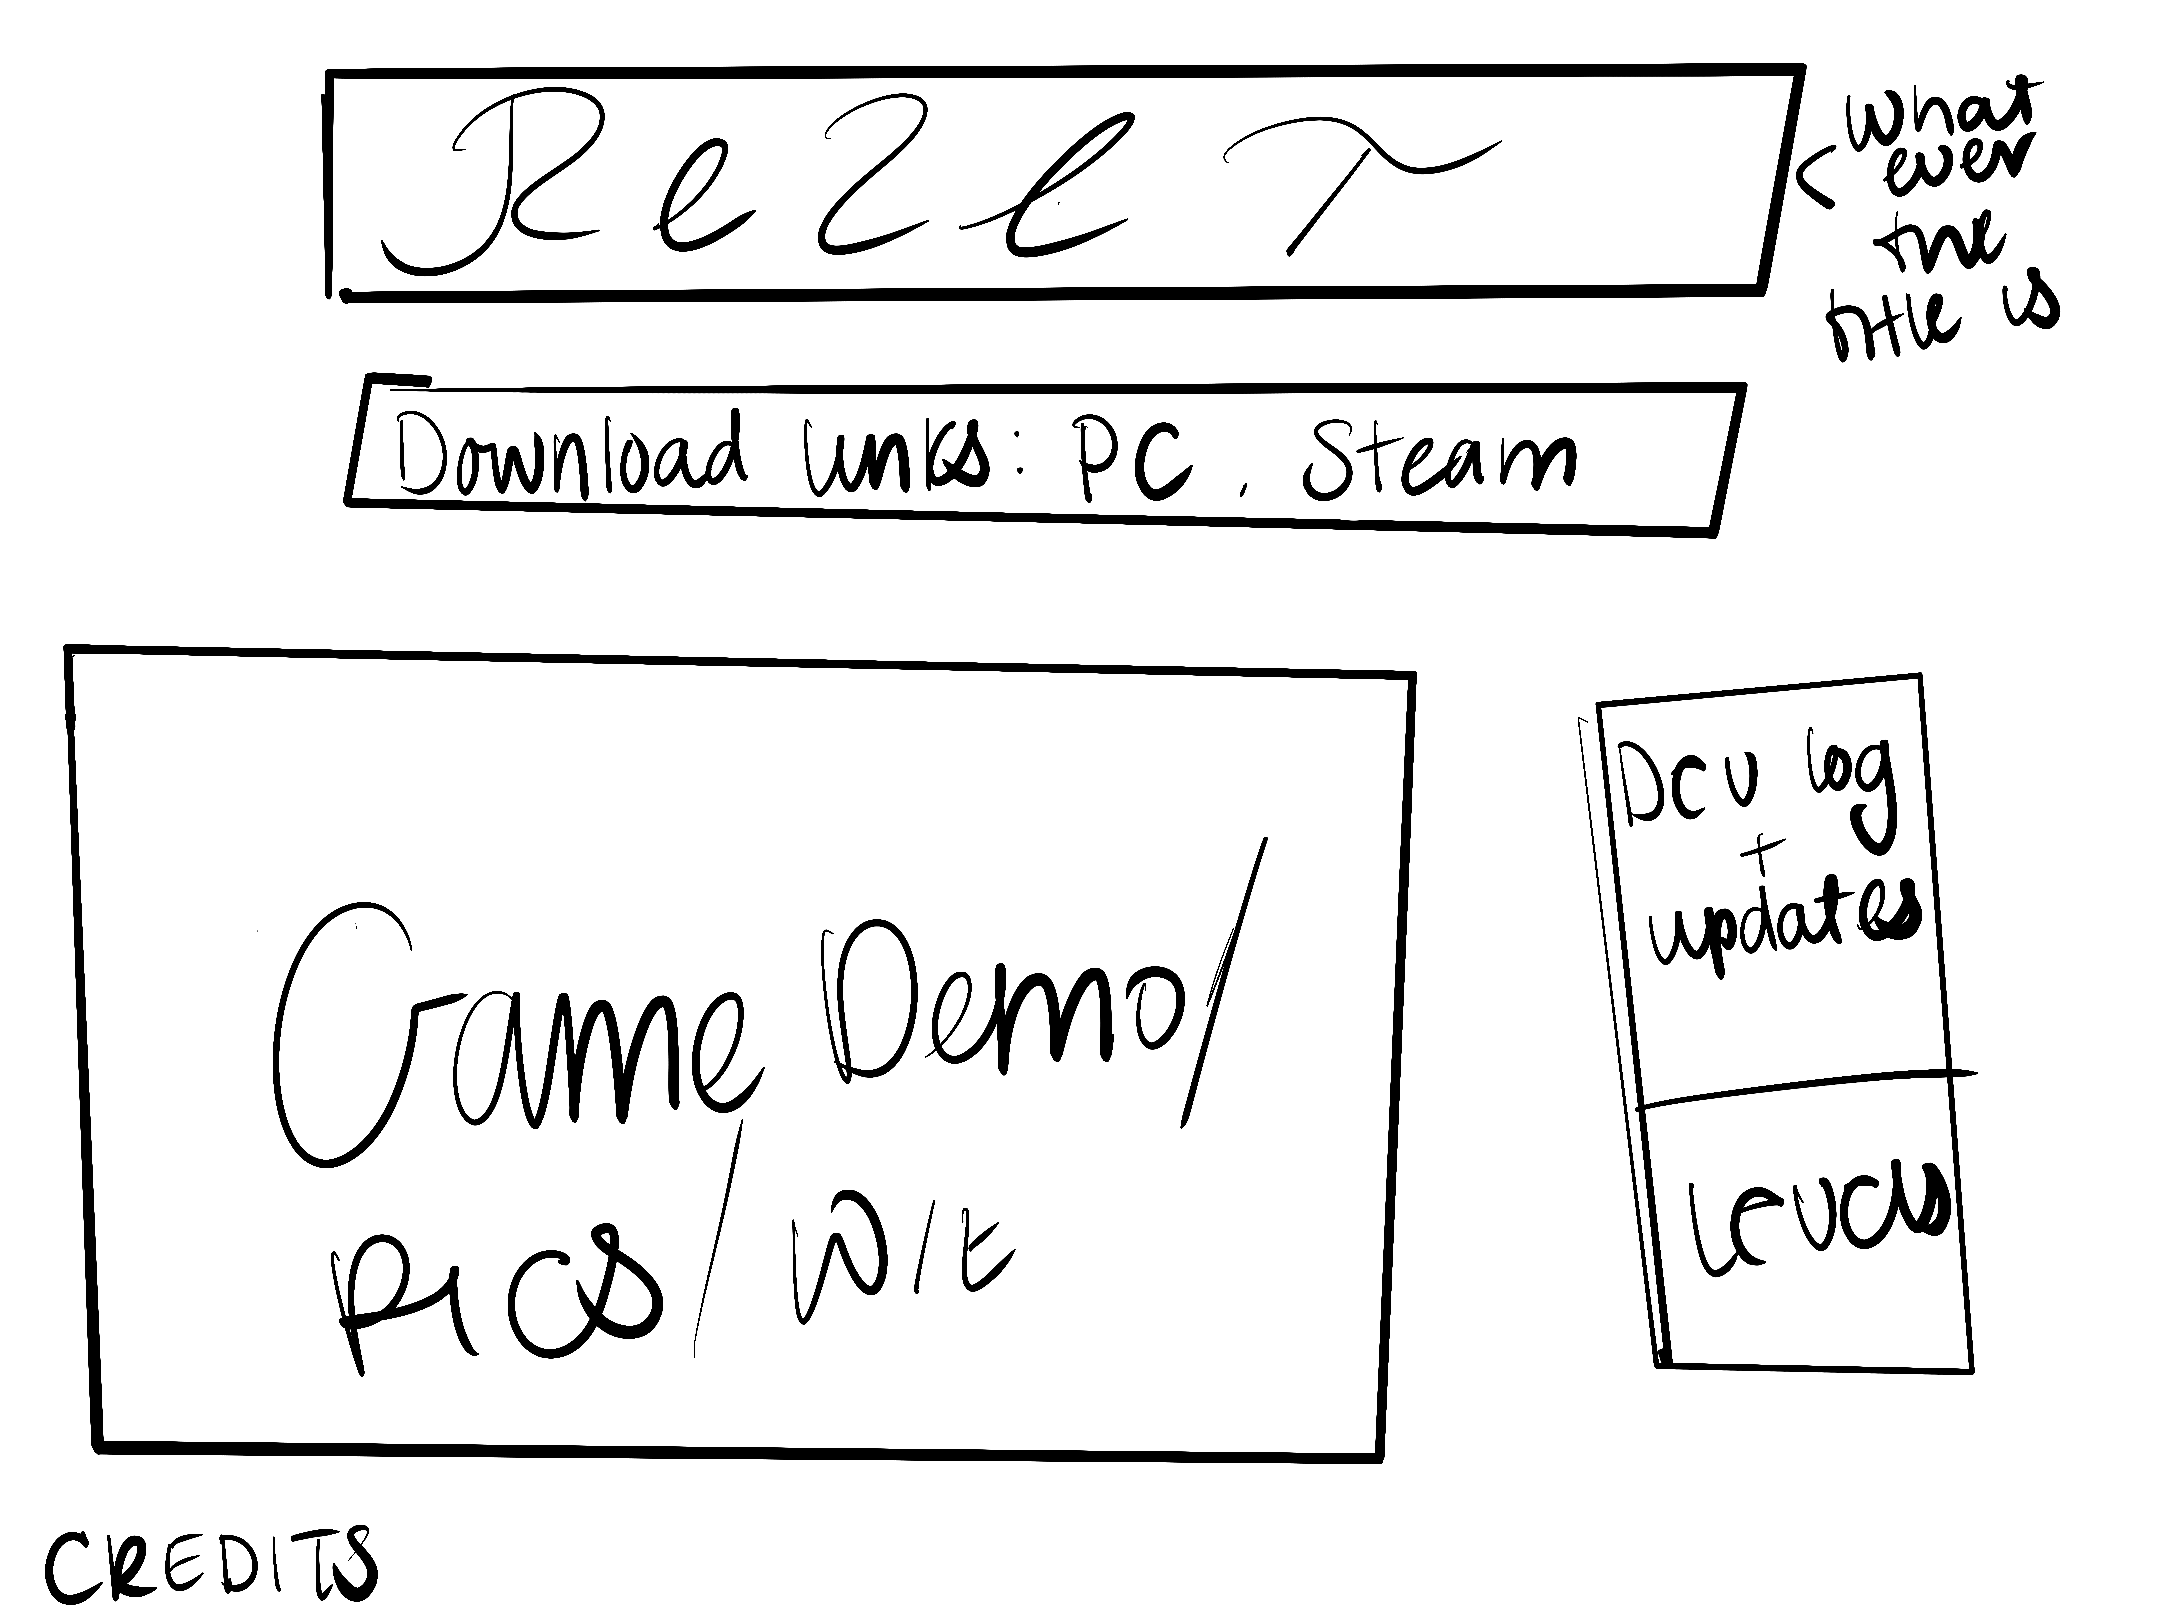 ReZeT
what
ever
the
title is
Download links: PC, Steam
Game Demo/
Pics/ W/E
Dev log
+
updates
Levels
CREDITS